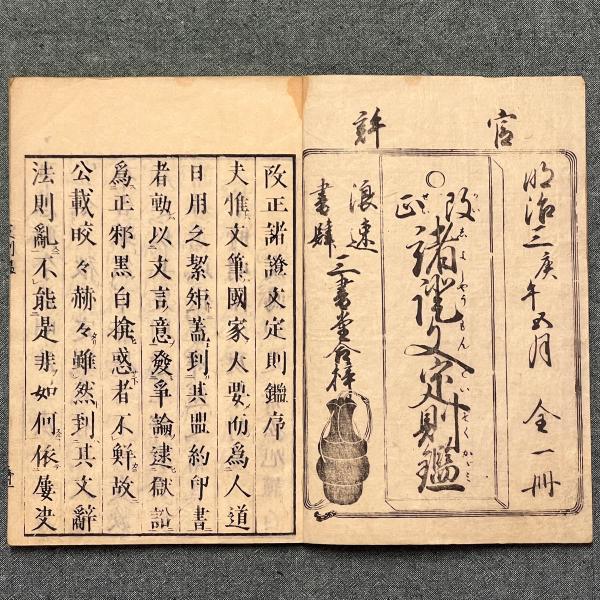 官許
明治三庚午五月 全一冊
改正
諸證文定則鑑
浪速
書肆
三書堂合梓
改正諸證文定則鑑序
夫惟文筆國家大要而為人道
日用之絜矩蓋到其盟約印書
者動以文言意發爭論逮獄訟
為正邪黒白搶惑者不鮮故
公載晈々赫々雖然到其文辭
法則亂不能是非如何依屢